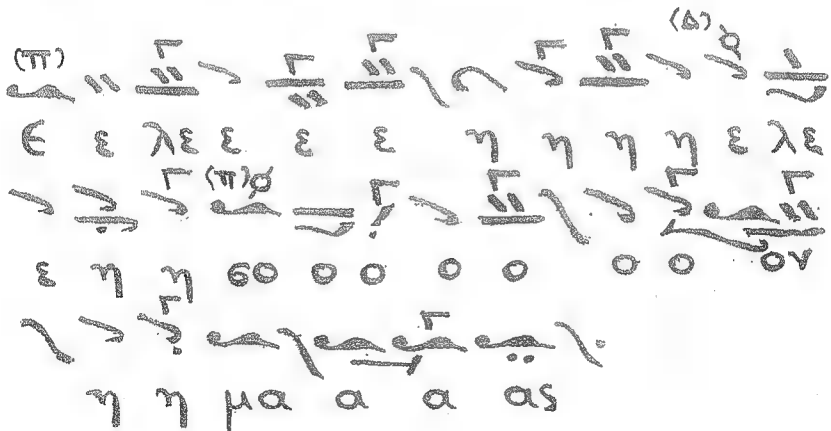 (π) (Δ)
ε ε λε ε ε ε η η η η ε λε
(π)
ε η η σο ο ο ο ο ο ο ου
η η μα α α ας